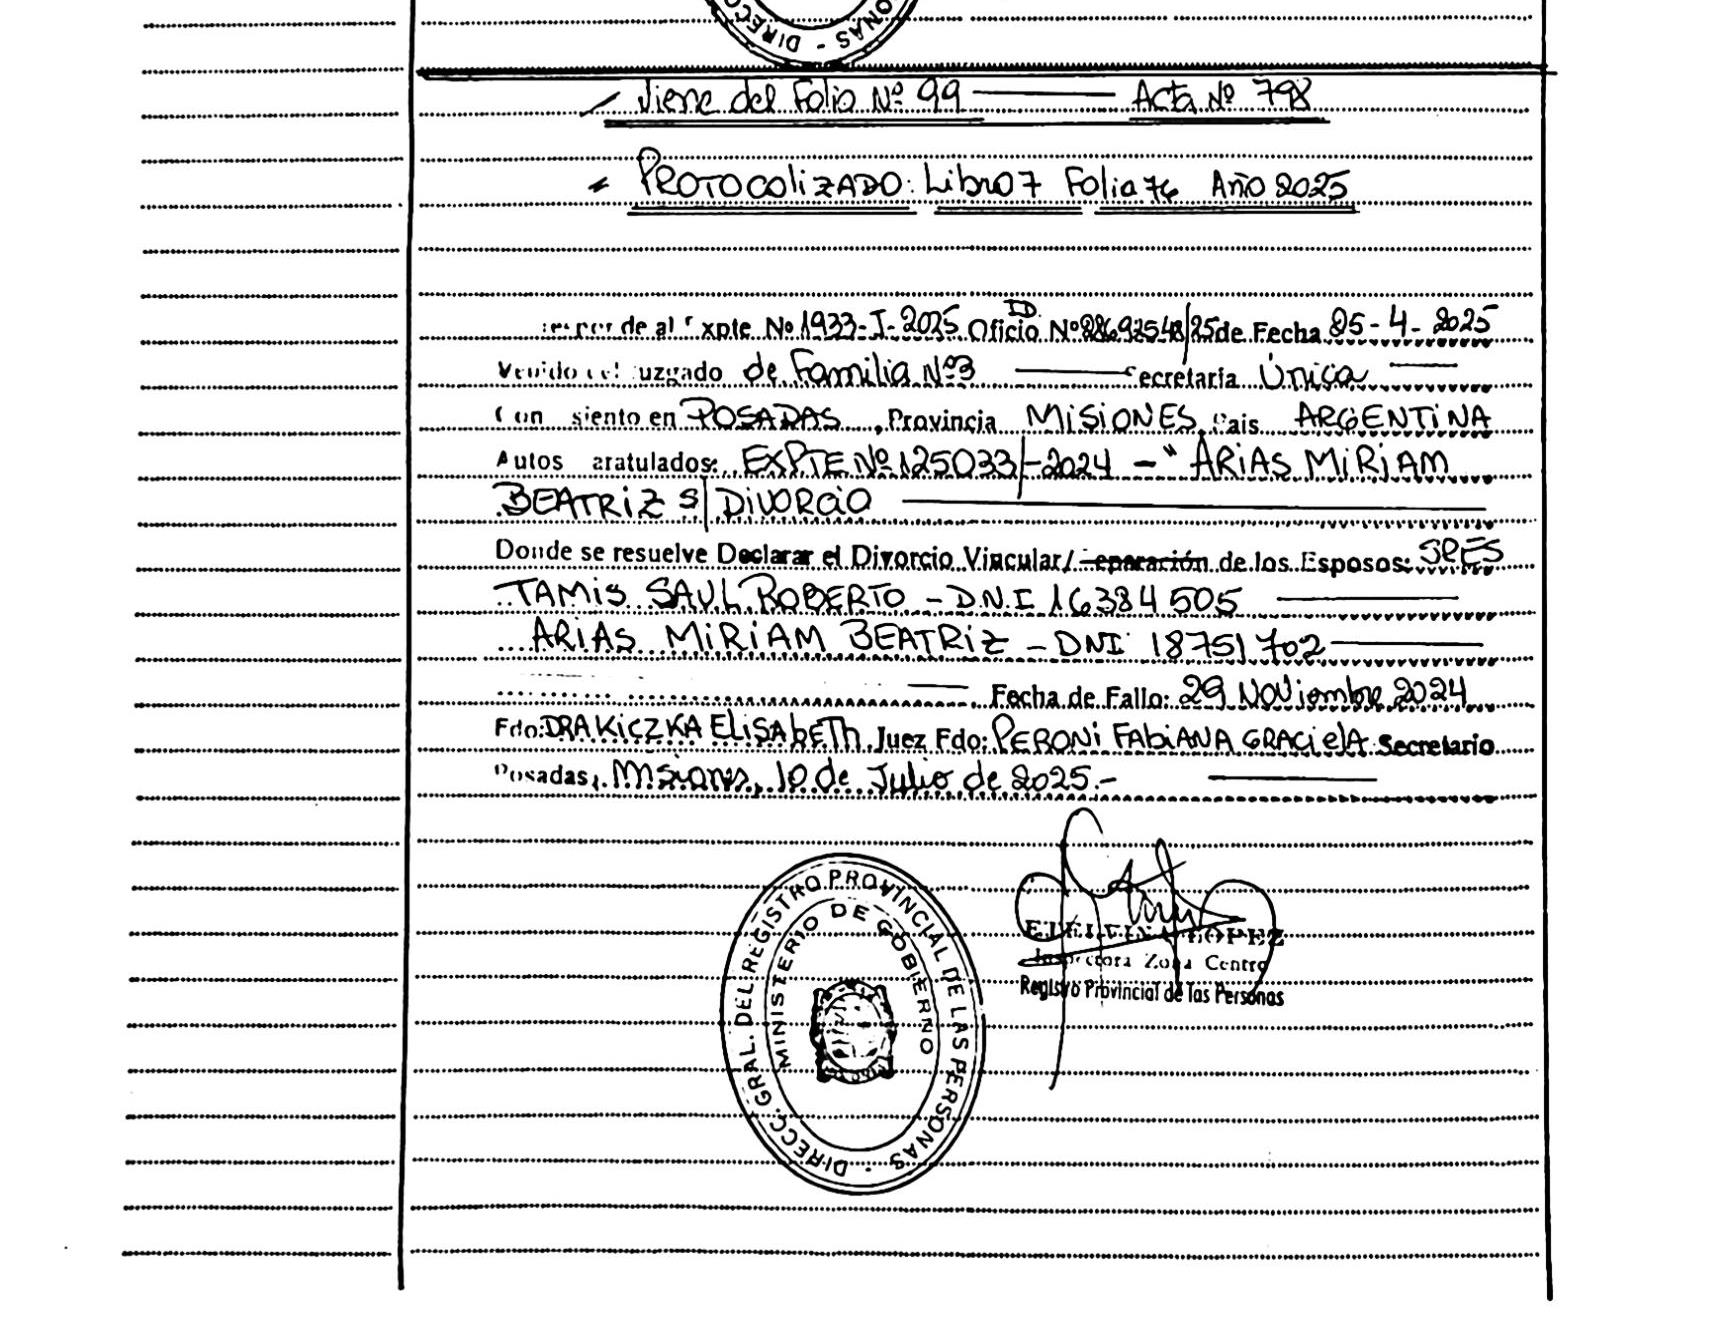 DIRECC. ONAS -
Viene del Folio Nº 99 — Acta Nº 798
PROTOCOLIZADO: Libro 7 Folio 76 Año 2025
de al Expte. Nº 1933-I-2025 Oficio ID Nº /25 de Fecha 25-4-2025
Venido del Juzgado de Familia Nº3 — Secretaria Única —
Con asiento en POSADAS, Provincia MISIONES, Pais ARGENTINA
Autos caratulados: EXPTE Nº 125033/-2024 - "ARIAS MIRIAM
BEATRIZ S/ DIVORCIO —
Donde se resuelve Declarar el Divorcio Vincular/ Separación de los Esposos: SRES
TAMIS SAUL ROBERTO - D.N.I 16384505 —
ARIAS MIRIAM BEATRIZ - DNI 18751702 —
— Fecha de Fallo: 29 NOViembre 2024
Fdo: DRA KICZKA ELISABETH Juez Fdo: PERONI FABIANA GRACIELA Secretario
Posadas, Misiones, 10 de Julio de 2025.- —
DIRECC. GRAL. DEL REGISTRO PROVINCIAL DE LAS PERSONAS -
MINISTERIO DE GOBIERNO
LOPEZ
Inspectora Zona Centro
Registro Provincial de las Personas